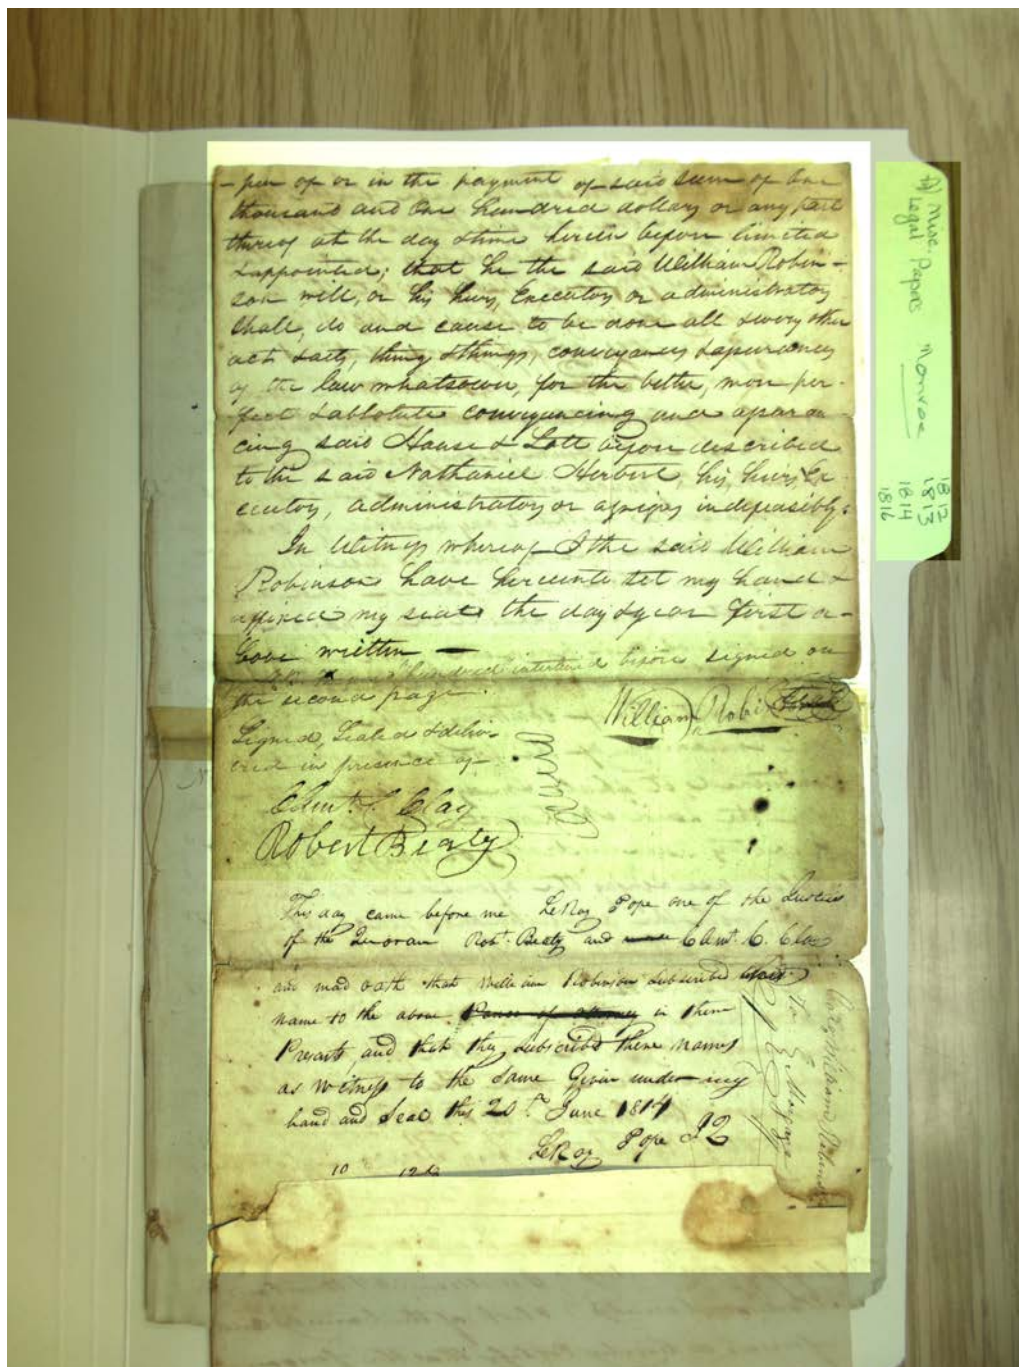 - per of or in the payment of said sum of one
thousand and One hundred dollars or any part
thereof at the day & time herein before limited
& appointed; that he the said William Robin-
son will, or his heirs, Executors or administrators
shall, do and cause to be done all & every other
act & acts, thing & things, conveyances & assurances
of the law whatsoever, for the better, more per-
fect & absolute conveyancing and assuran
cing said House & Lott before described
to the said Nathaniel Herbert, his heirs, Ex
ecutors, administrators or assigns indefeasibly.
In Witness whereof I the said William
Robinson have hereunto set my hand &
affixed my seal the day & year first a-
bove written —
hundred interlined before signed on
the second page.
Signed, Sealed & deliv-
ered in presence of
William Robi
Seal
Clemt. C. Clay
Robert Beaty
This day came before me LeRoy Pope one of the Justices
of the Quoram Robt. Beaty and Clemt. C. Clay
and mad oath that William Robinson subscribed his
name to the above Power of attorney in there
Presents, and that they subscribd there names
as witness to the same Given under my
hand and Seal this 20th. June 1814
LeRoy Pope J2
10 12
William Robinson
To } Mortgage
A) Misc. Papers
Legal
Monroe
1812
1813
1814
1816